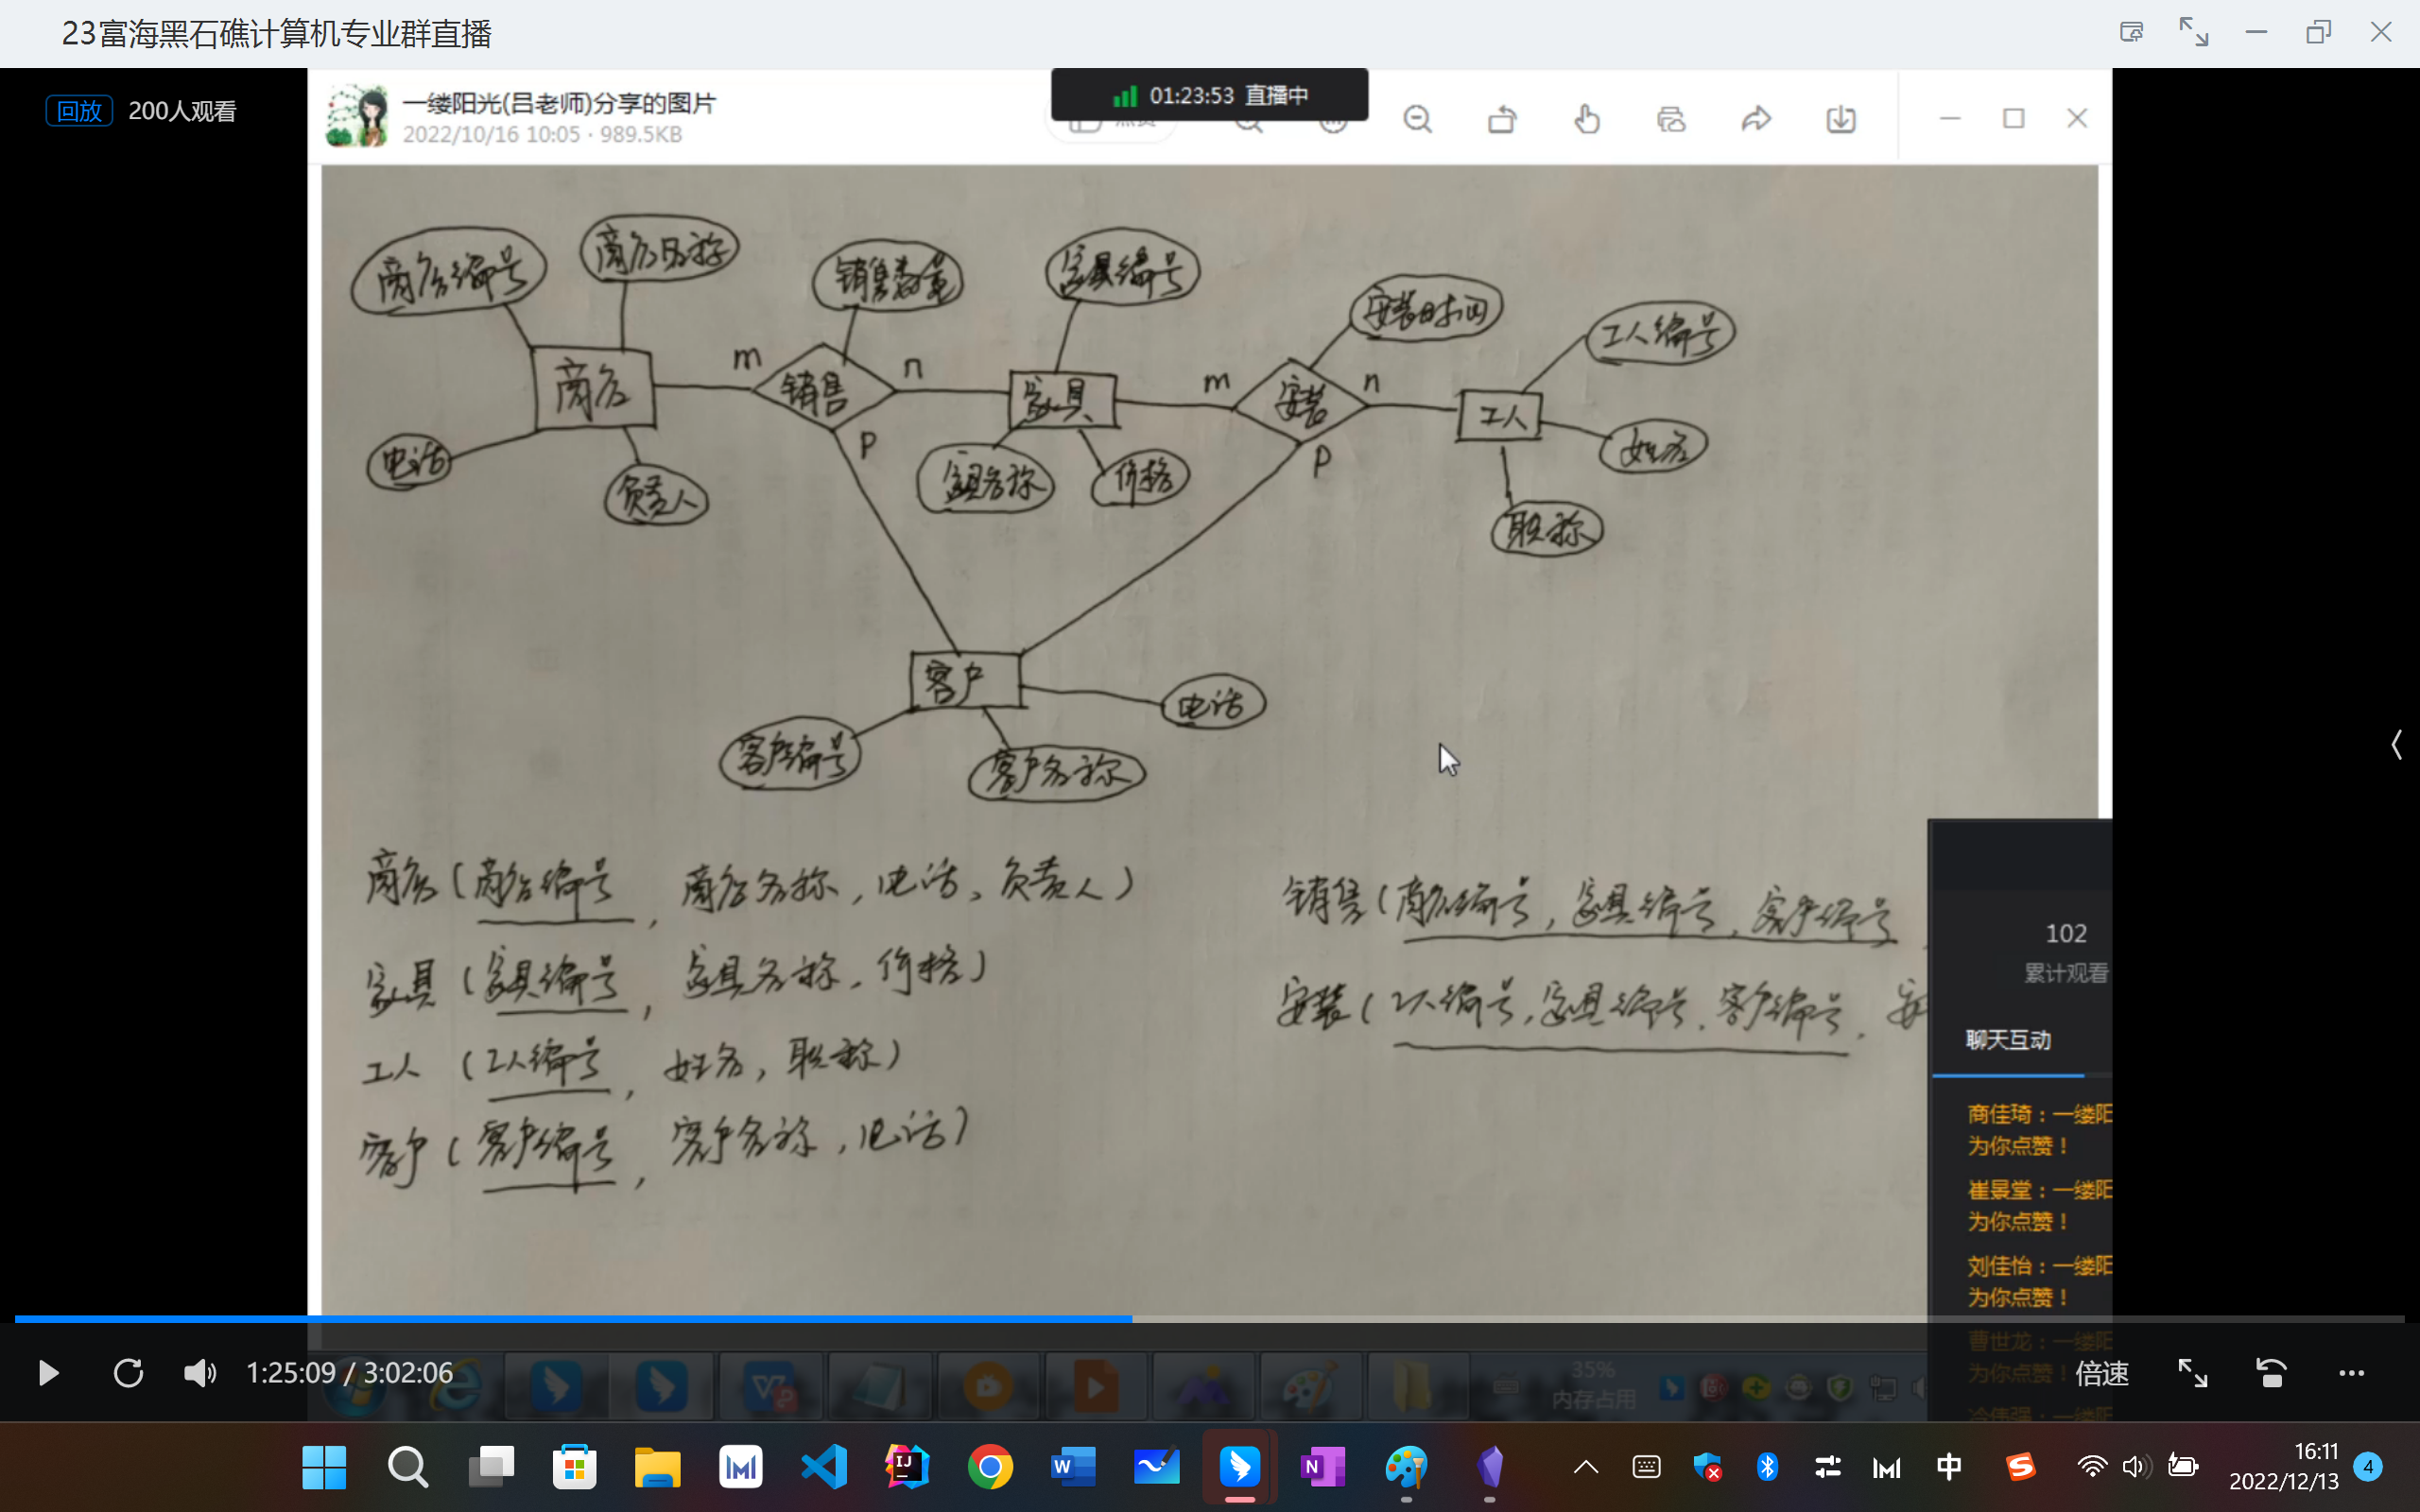 23富海黑石礁计算机专业群直播
回放 200人观看
一缕阳光(吕老师)分享的图片
2022/10/16 10:05 · 989.5KB
01:23:53 直播中
商店编号
商店名称
销售数量
家具编号
安装时间
工人编号
商店
m
销售
n
家具
m
安装
n
工人
电话
负责人
p
家具名称
价格
p
姓名
职称
客户
电话
客户编号
客户名称
商店(商店编号, 商店名称, 电话, 负责人)
家具(家具编号, 家具名称, 价格)
工人(工人编号, 姓名, 职称)
客户(客户编号, 客户名称, 电话)
销售(商店编号, 家具编号, 客户编号,
安装(工人编号, 家具编号, 客户编号, 安
102
累计观看
聊天互动
商佳琦：一缕阳
为你点赞！
崔景堂：一缕阳
为你点赞！
刘佳怡：一缕阳
为你点赞！
曹世龙：一缕阳
为你点赞！
1:25:09 / 3:02:06
35%
内存占用
倍速
中
16:11
2022/12/13
4